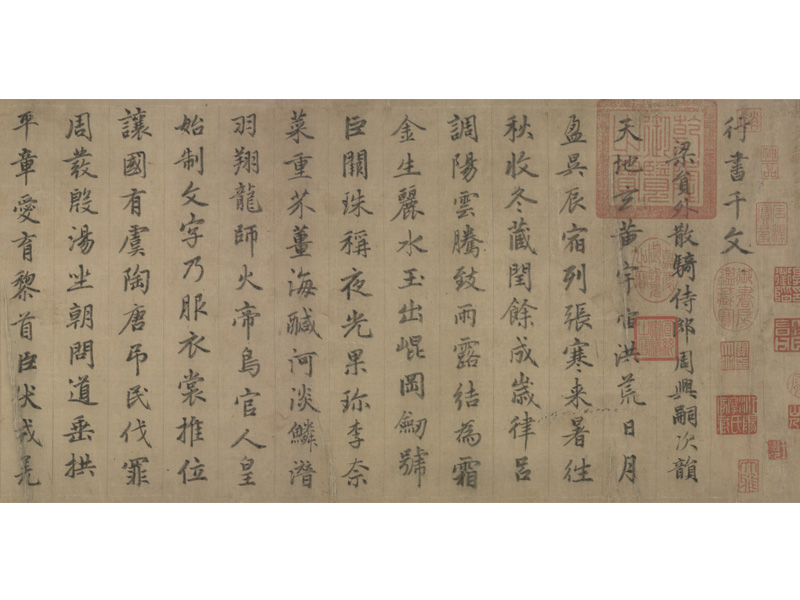 行書千文
梁員外散騎侍郎周興嗣次韻
天地玄黃宇宙洪荒日月
盈昃辰宿列張寒来暑往
秋收冬藏閏餘成歲律呂
調陽雲騰致雨露結為霜
金生麗水玉出崐岡劒號
巨闕珠稱夜光果珎李奈
菜重芥薑海醎河淡鱗潛
羽翔龍師火帝鳥官人皇
始制文字乃服衣裳推位
讓國有虞陶唐弔民伐罪
周發殷湯坐朝問道垂拱
平章愛育黎首臣伏戎羌